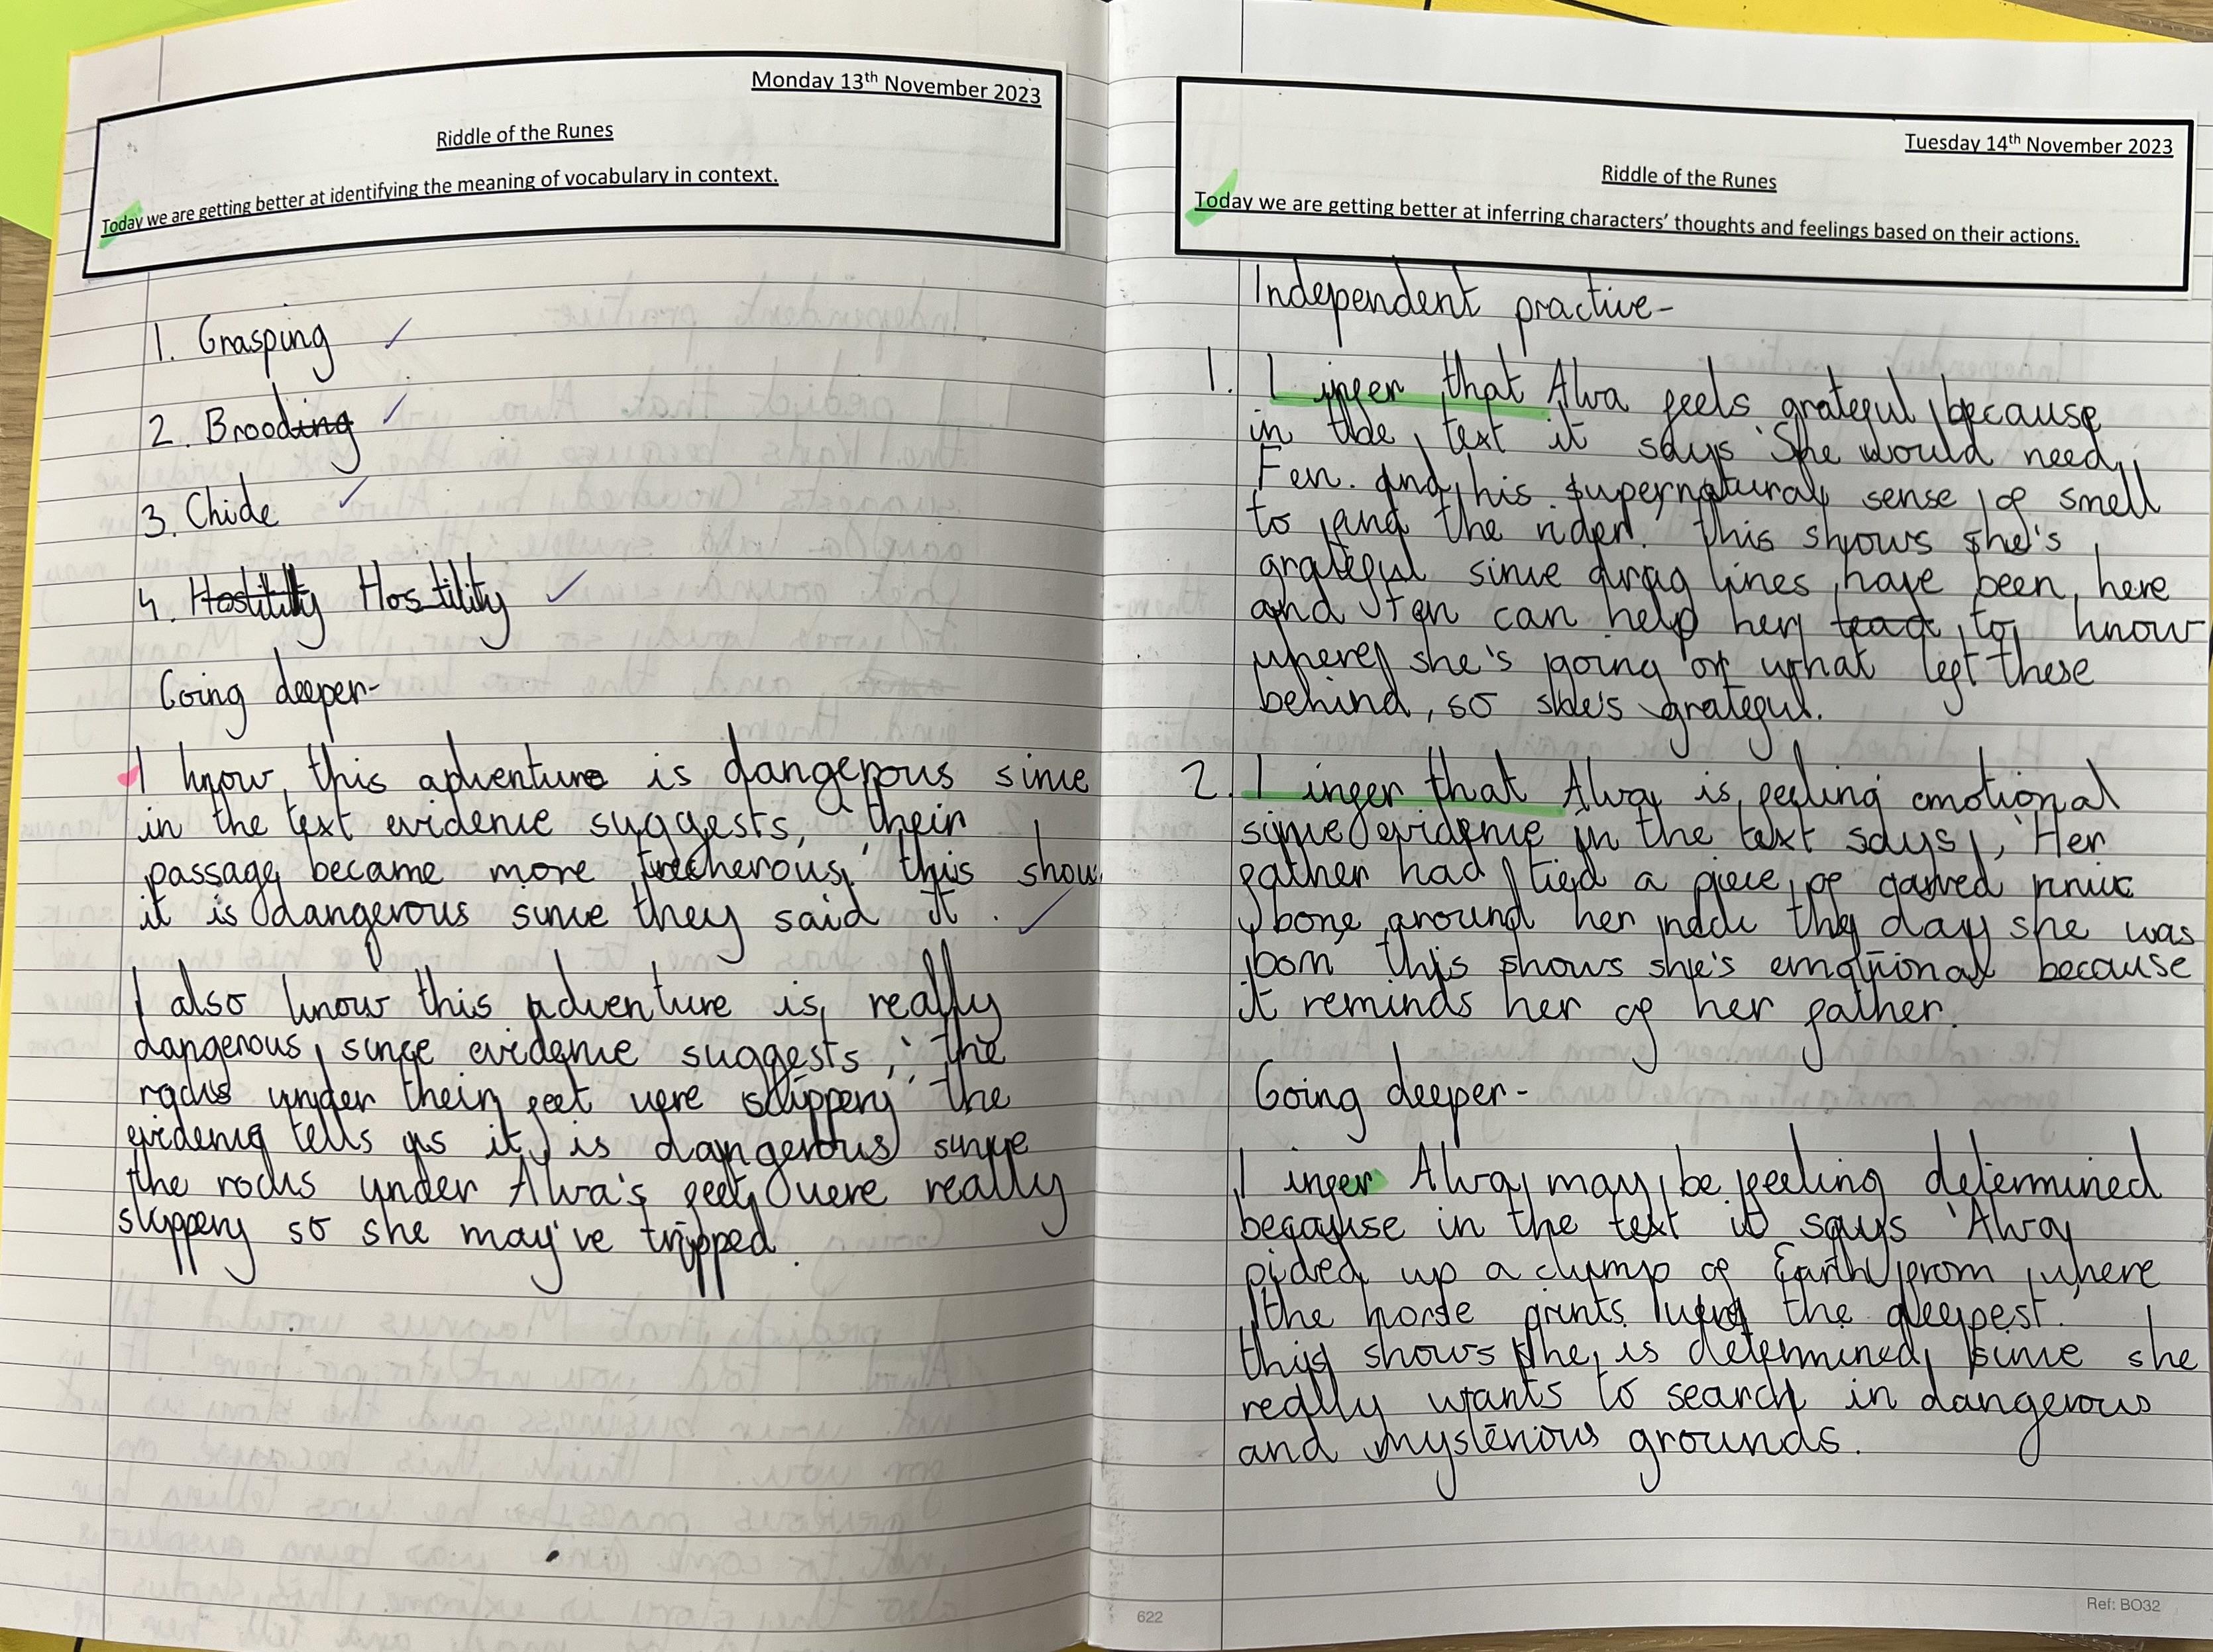 Monday 13th November 2023
Riddle of the Runes
Today we are getting better at identifying the meaning of vocabulary in context.
1. Grasping
2. Brooding
3. Chide
4. Hostility Hostility
Going deeper-
I know this adventure is dangerous since
in the text evidence suggests, 'their
passage became more trecherous,' this show
it is dangerous since they said it.
I also know this adventure is really
dangerous, since evidence suggests, 'the
rocks under their feet were slippery' the
evidence tells us it is dangerous since
the rocks under Alva's feet were really
slippery so she may've tripped.
Tuesday 14th November 2023
Riddle of the Runes
Today we are getting better at inferring characters' thoughts and feelings based on their actions.
Independent practice-
1. I infer that Alva feels grateful because
in the text it says 'She would need
Fen. and his supernatural sense of smell
to and the rider. this shows she's
grateful since drag lines have been here
and Fen can help her to know
where she's going or what left these
behind, so she's grateful.
2. I infer that Alva is feeling emotional
since evidence in the text says, 'Her
father had tied a piece of carved
bone around her neck the day she was
born this shows she's emotional because
it reminds her of her father.
Going deeper-
I infer Alva may be feeling determined
because in the text it says 'Alva
picked up a clump of Earth from where
the horse prints were the deepest.'
this shows she is determined since she
really wants to search in dangerous
and mysterious grounds.
622
Ref: BO32